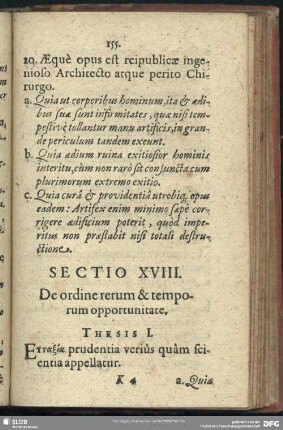 155.
20. Æquè opus est reipublicæ inge-
nioso Architecto atque perito Chi-
rurgo.
a. Quia ut corporibus hominum, ita & ædi-
bus suæ sunt infirmitates, quæ nisi tem-
pestivè tollantur manu artificis, in gran-
de periculum tandem exeunt.
b. Quia ædium ruina exitiosior hominis
interitu, cùm non rarò sit conjuncta cum
plurimorum extremo exitio.
c. Quia curâ & providentiâ utrobiq, opus
eadem: Artifex enim minimo sæpè cor-
rigere ædificium poterit, quod impe-
ritus non præstabit nisi totali destru-
ctione.
SECTIO XVIII.
De ordine rerum & tempo-
rum opportunitate.
THESIS I.
Ευταξία prudentia veriùs quàm sci-
entia appellatur.
K 4 a. Quia
SLUB
DFG